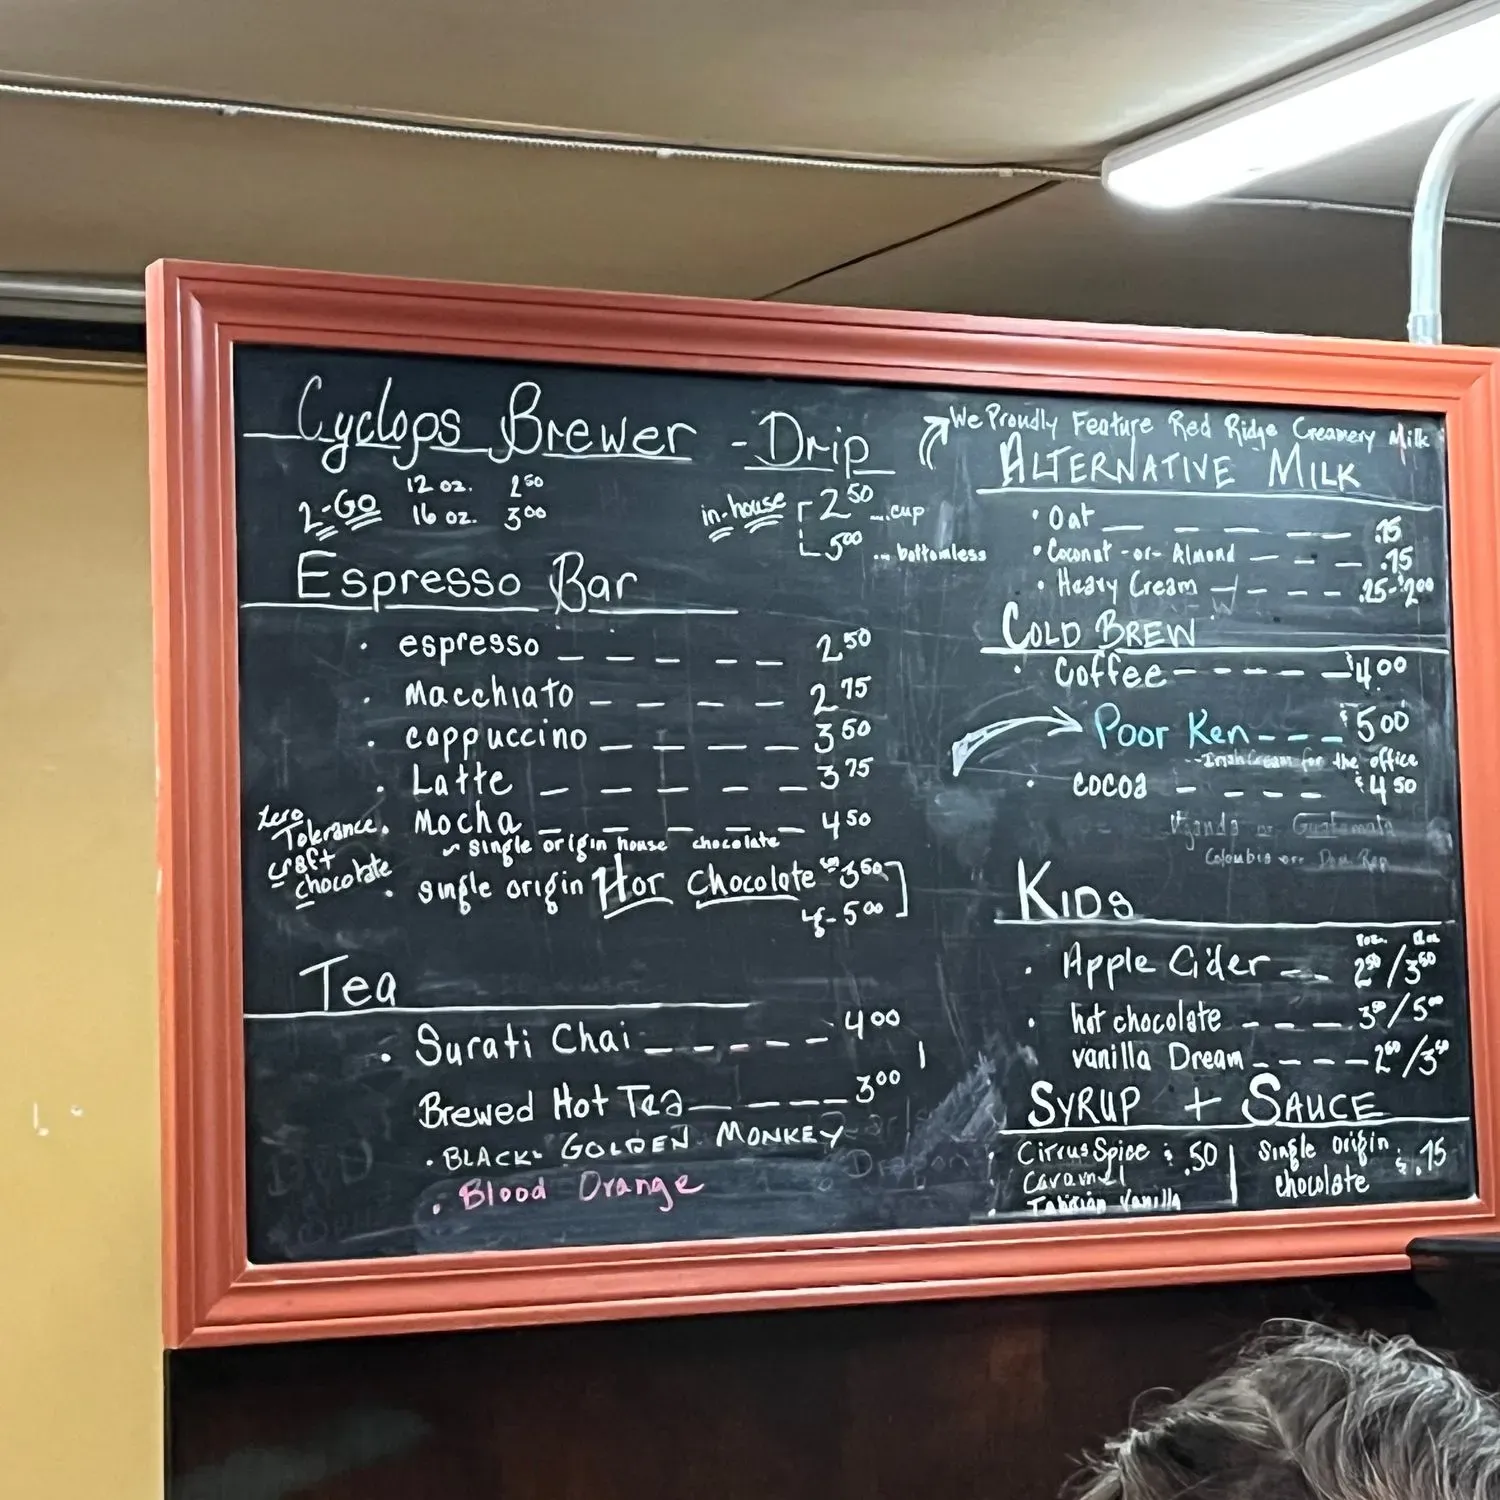 Cyclops Brewer - Drip
2-Go 12 oz. 2.50
16 oz. 3.00
in-house 2.50 ....cup
5.00 ... bottomless
Espresso Bar
espresso _ _ _ _ _ 2.50
macchiato _ _ _ _ _ 2.75
cappuccino _ _ _ _ _ 3.50
Latte _ _ _ _ _ _ 3.75
Mocha _ _ _ _ _ _ 4.50
single origin house chocolate
Zero
Tolerance
craft
chocolate
single origin Hot chocolate 3.50
5.00
Tea
Surati Chai _ _ _ _ _ 4.00
Brewed Hot Tea _ _ _ _ _ 3.00
BLACK- GOLDEN MONKEY
Blood Orange
We Proudly Feature Red Ridge Creamery Milk
ALTERNATIVE MILK
Oat _ _ _ _ _ .75
Coconut -or- Almond _ _ _ .75
Heavy Cream _ _ _ _ .25-$2.00
COLD BREW
Coffee - - - - - $4.00
Poor Ken - - - $5.00
--Irish Cream for the office
cocoa - - - - $4.50
Uganda or Guatemala
Colombia or Dom. Rep
KIDS
8oz. 12oz
Apple Cider _ _ _ 2.50/3.50
hot chocolate - - - - 3.50/5.00
vanilla Dream - - - - 2.50/3.50
SYRUP + SAUCE
Citrus Spice : .50
Caramel
Tahitian Vanilla
Single origin : $.75
chocolate